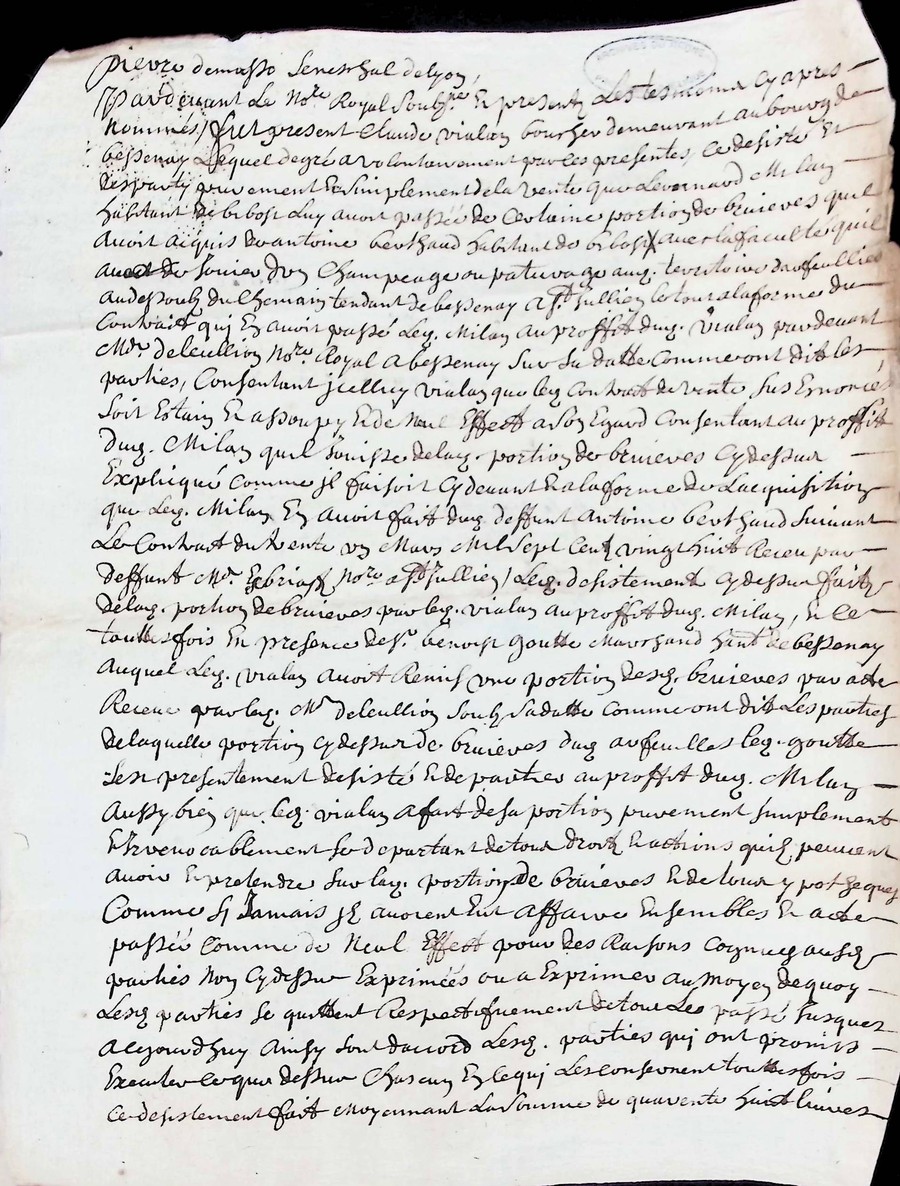 pierre demasso Seneschal de lyon,
Pardevant Le No.re Royal Soub.né Et present Les tesmoins Cy apres
Nommés, fut present Claude vialan boucher demeurant au bourg de
bessenay Lequel de gré a volontairement par Les presentes, Ce desiste Et
desparty purement Et Simplement de la vente que Leonard Milan
habitant de bibost Luy avoit passée de Certaine portion de bruieres quil
avoit acquis de antoine berthaud habitant de bibost avec la faculté quil
de Jouier dun Champeage ou paturage aud. territoire darfeuillies
au dessoub du Chemain tendant de bessenay a St Jullien le tout a la forme du
Contract qui En avoit passé Led. Milan au proffit dud. Vialan pardevant
Me. deleullion No.re Royal a bessenay Sur Sa datte Comme ont dit Les
parties, Consentant jcelluy vialan que led. Contract de vente Sus Ennoncés
Soit Estain Et assoupy Et de Neul Effect a Son Egard Consentant au proffit
dud. Milan quil Jouisse de lad. portion de bruieres Cy dessus
Expliqué Comme jl faisoit Cy devant Et a la forme de Lacquisition
que Led. Milan En avoit fait dud. deffunt Antoine berthaud Suivant
Le Contract du vente Mars Mil Sept Cent vingt huit Receu par
deffunt Me. No.re a St Jullien, Led. desistement Cy dessus fait
de lad. portion de bruieres par led. vialan au proffit dud. Milan, Et Ce
touttesfois En presence de Sr. benoist goutte Marchand hant de bessenay
auquel Led. vialan avoit Remis une portion desd. bruieres par acte
Receu par led. Me deleullion Soub Sa datte Comme ont dit Les parties
de laquelle portion Cy dessus de bruieres dud arfeuilles led. goutte
Sest presentement desisté Et departie au proffit dud. Milan
aussy bien que led. vialan a fait de sa portion purement Simplement
Et Irrevocablement Se departant de tous droits Et actions quils peuvent
avoir Et pretendre Sur lad. portion de bruieres Et de tous ypotheques
Comme Sy Jamais jls avoient Eut affaire Ensembles Et acte
passée Comme de Neul Effect pour des Raisons Cognues ausd.
parties Non Cy dessus Exprimées ou a Exprimer au moyen de quoy
Lesd. parties Se quittent Respectifvement de tout Le passé Jusques
a Cejourdhuy Ainsy Sont daccord Lesd. parties qui ont promis
Executer Ce que dessus Chascun En Ce qui Les Consernent touttesfois
Ce desistement fait Moyennant La Somme de quarente huict livres